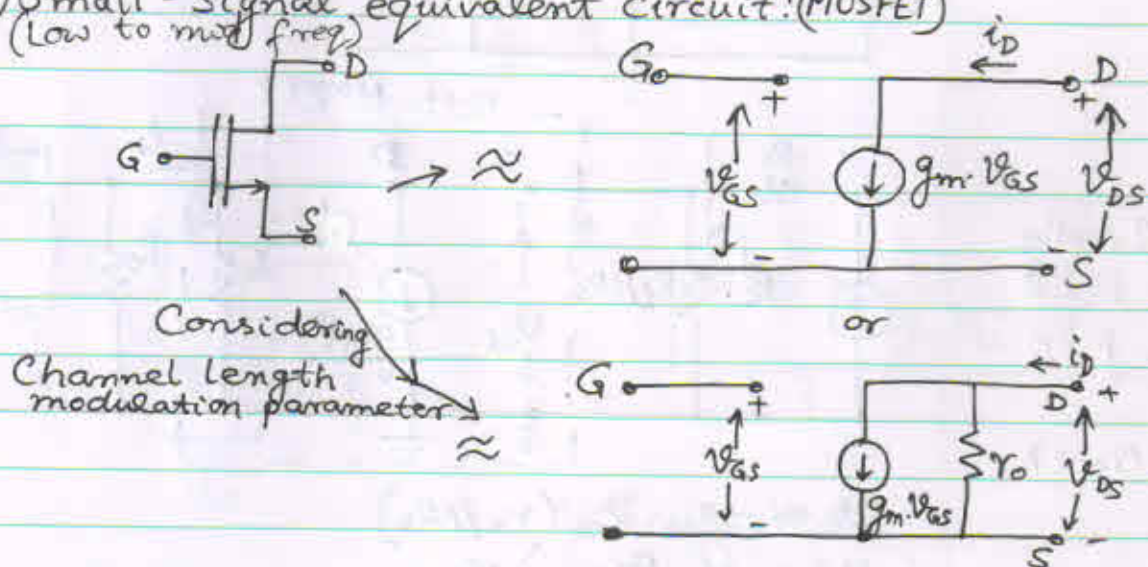 Small-Signal equivalent Circuit: (MOSFET)
(Low to mod freq)
D
G
S
→ ≈
G
+
i_D
D
+
v_GS
g_m. v_GS
v_DS
-
- S
or
Considering
Channel length
modulation parameter
≈
G
+
i_D
D +
v_GS
g_m. v_GS
r_o
v_DS
-
S -